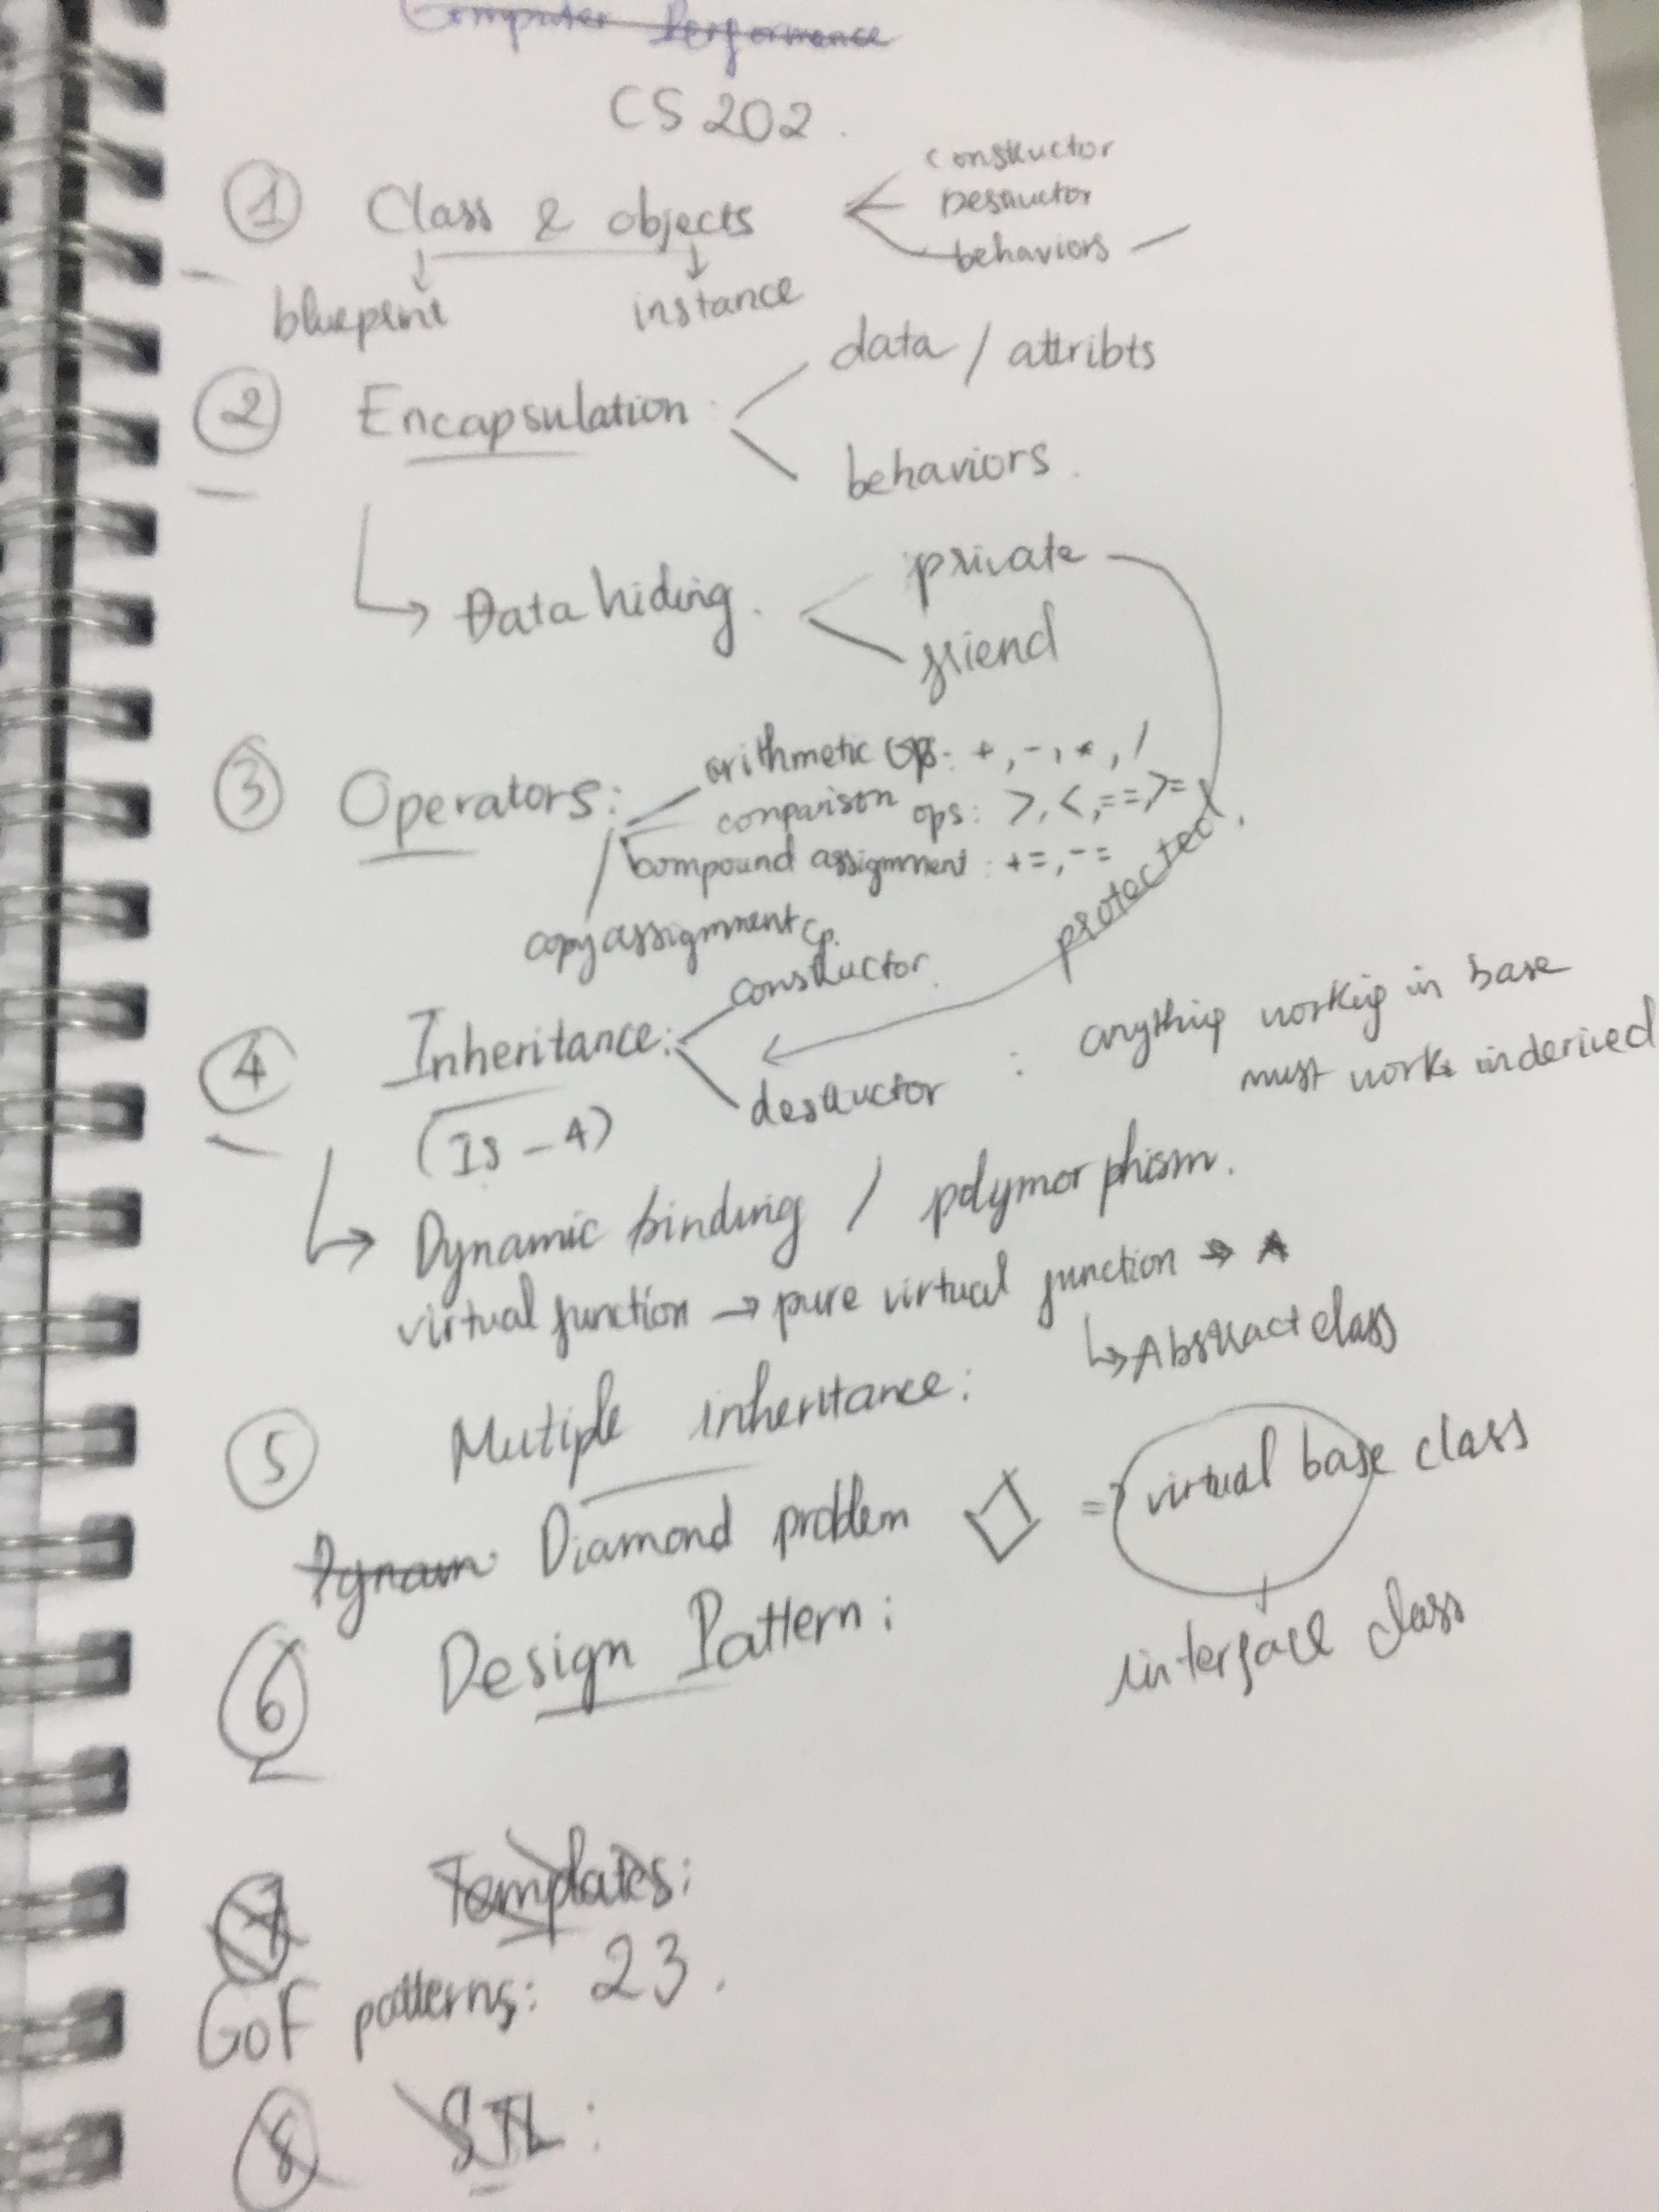 Computer Performance
CS 202.
① Class & objects
constructor
Destructor
behaviors
blueprint instance
② Encapsulation:
data / attribts
behaviors.
Data hiding.
private
friend
③ Operators:
arithmetic ops: +, -, *, /
comparison ops: >, <, ==, >=
compound assignment: +=, -=
copy assignment cp.
protected.
④ Inheritance:
constructor.
destructor : anything working in base
must work in derived
(IS - A)
Dynamic binding / polymorphism.
virtual function → pure virtual function → A
↳ Abstract class
⑤ Mutiple inheritance:
Dynam Diamond problem => virtual base class
interface class
⑥ Design Pattern:
⑦ Templates:
GoF patterns: 23.
⑧ STL: